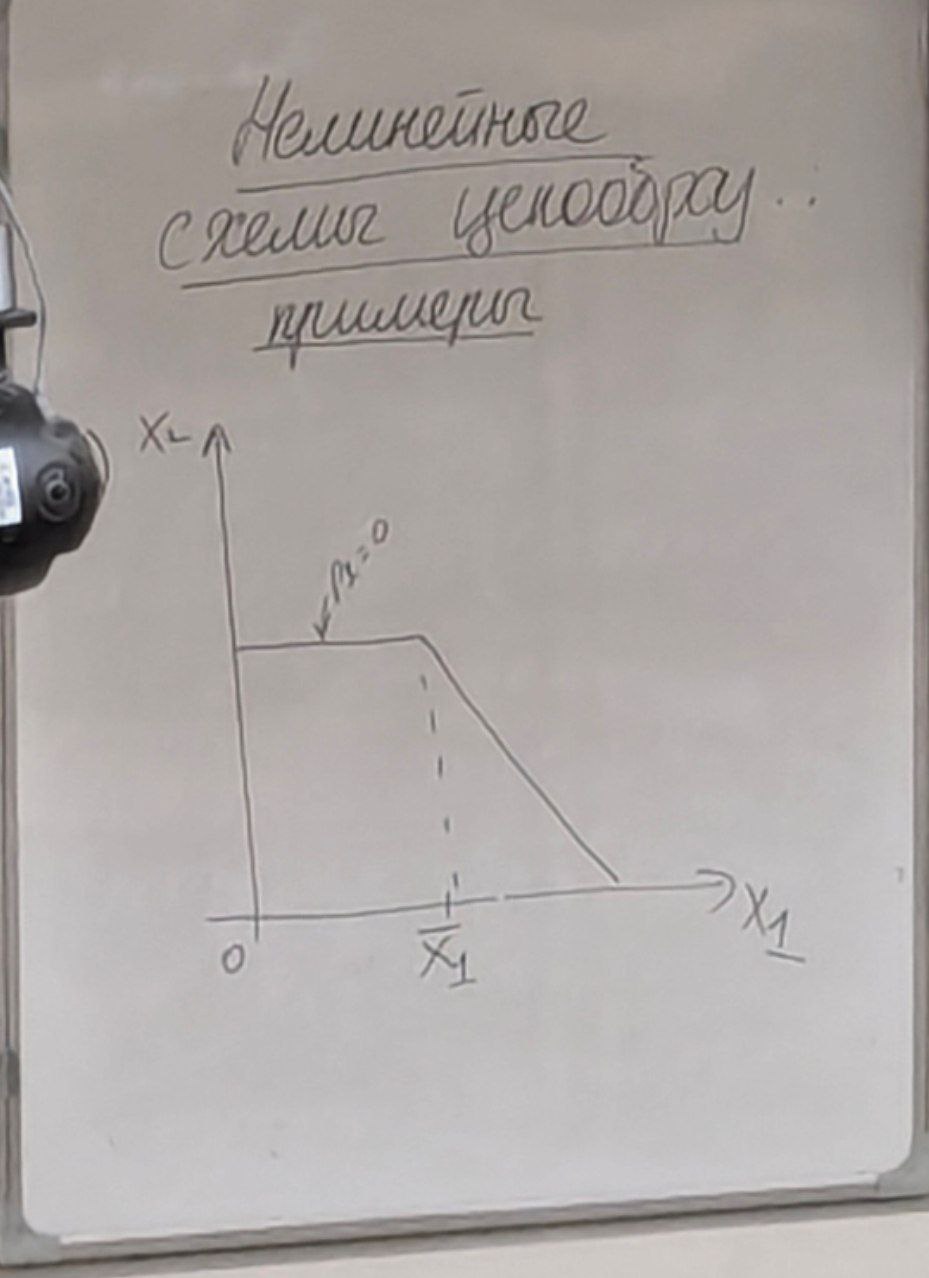 Нелинейные
схемы ценообразу...
примеры
X₂
P₁=0
0
X̅₁
X₁